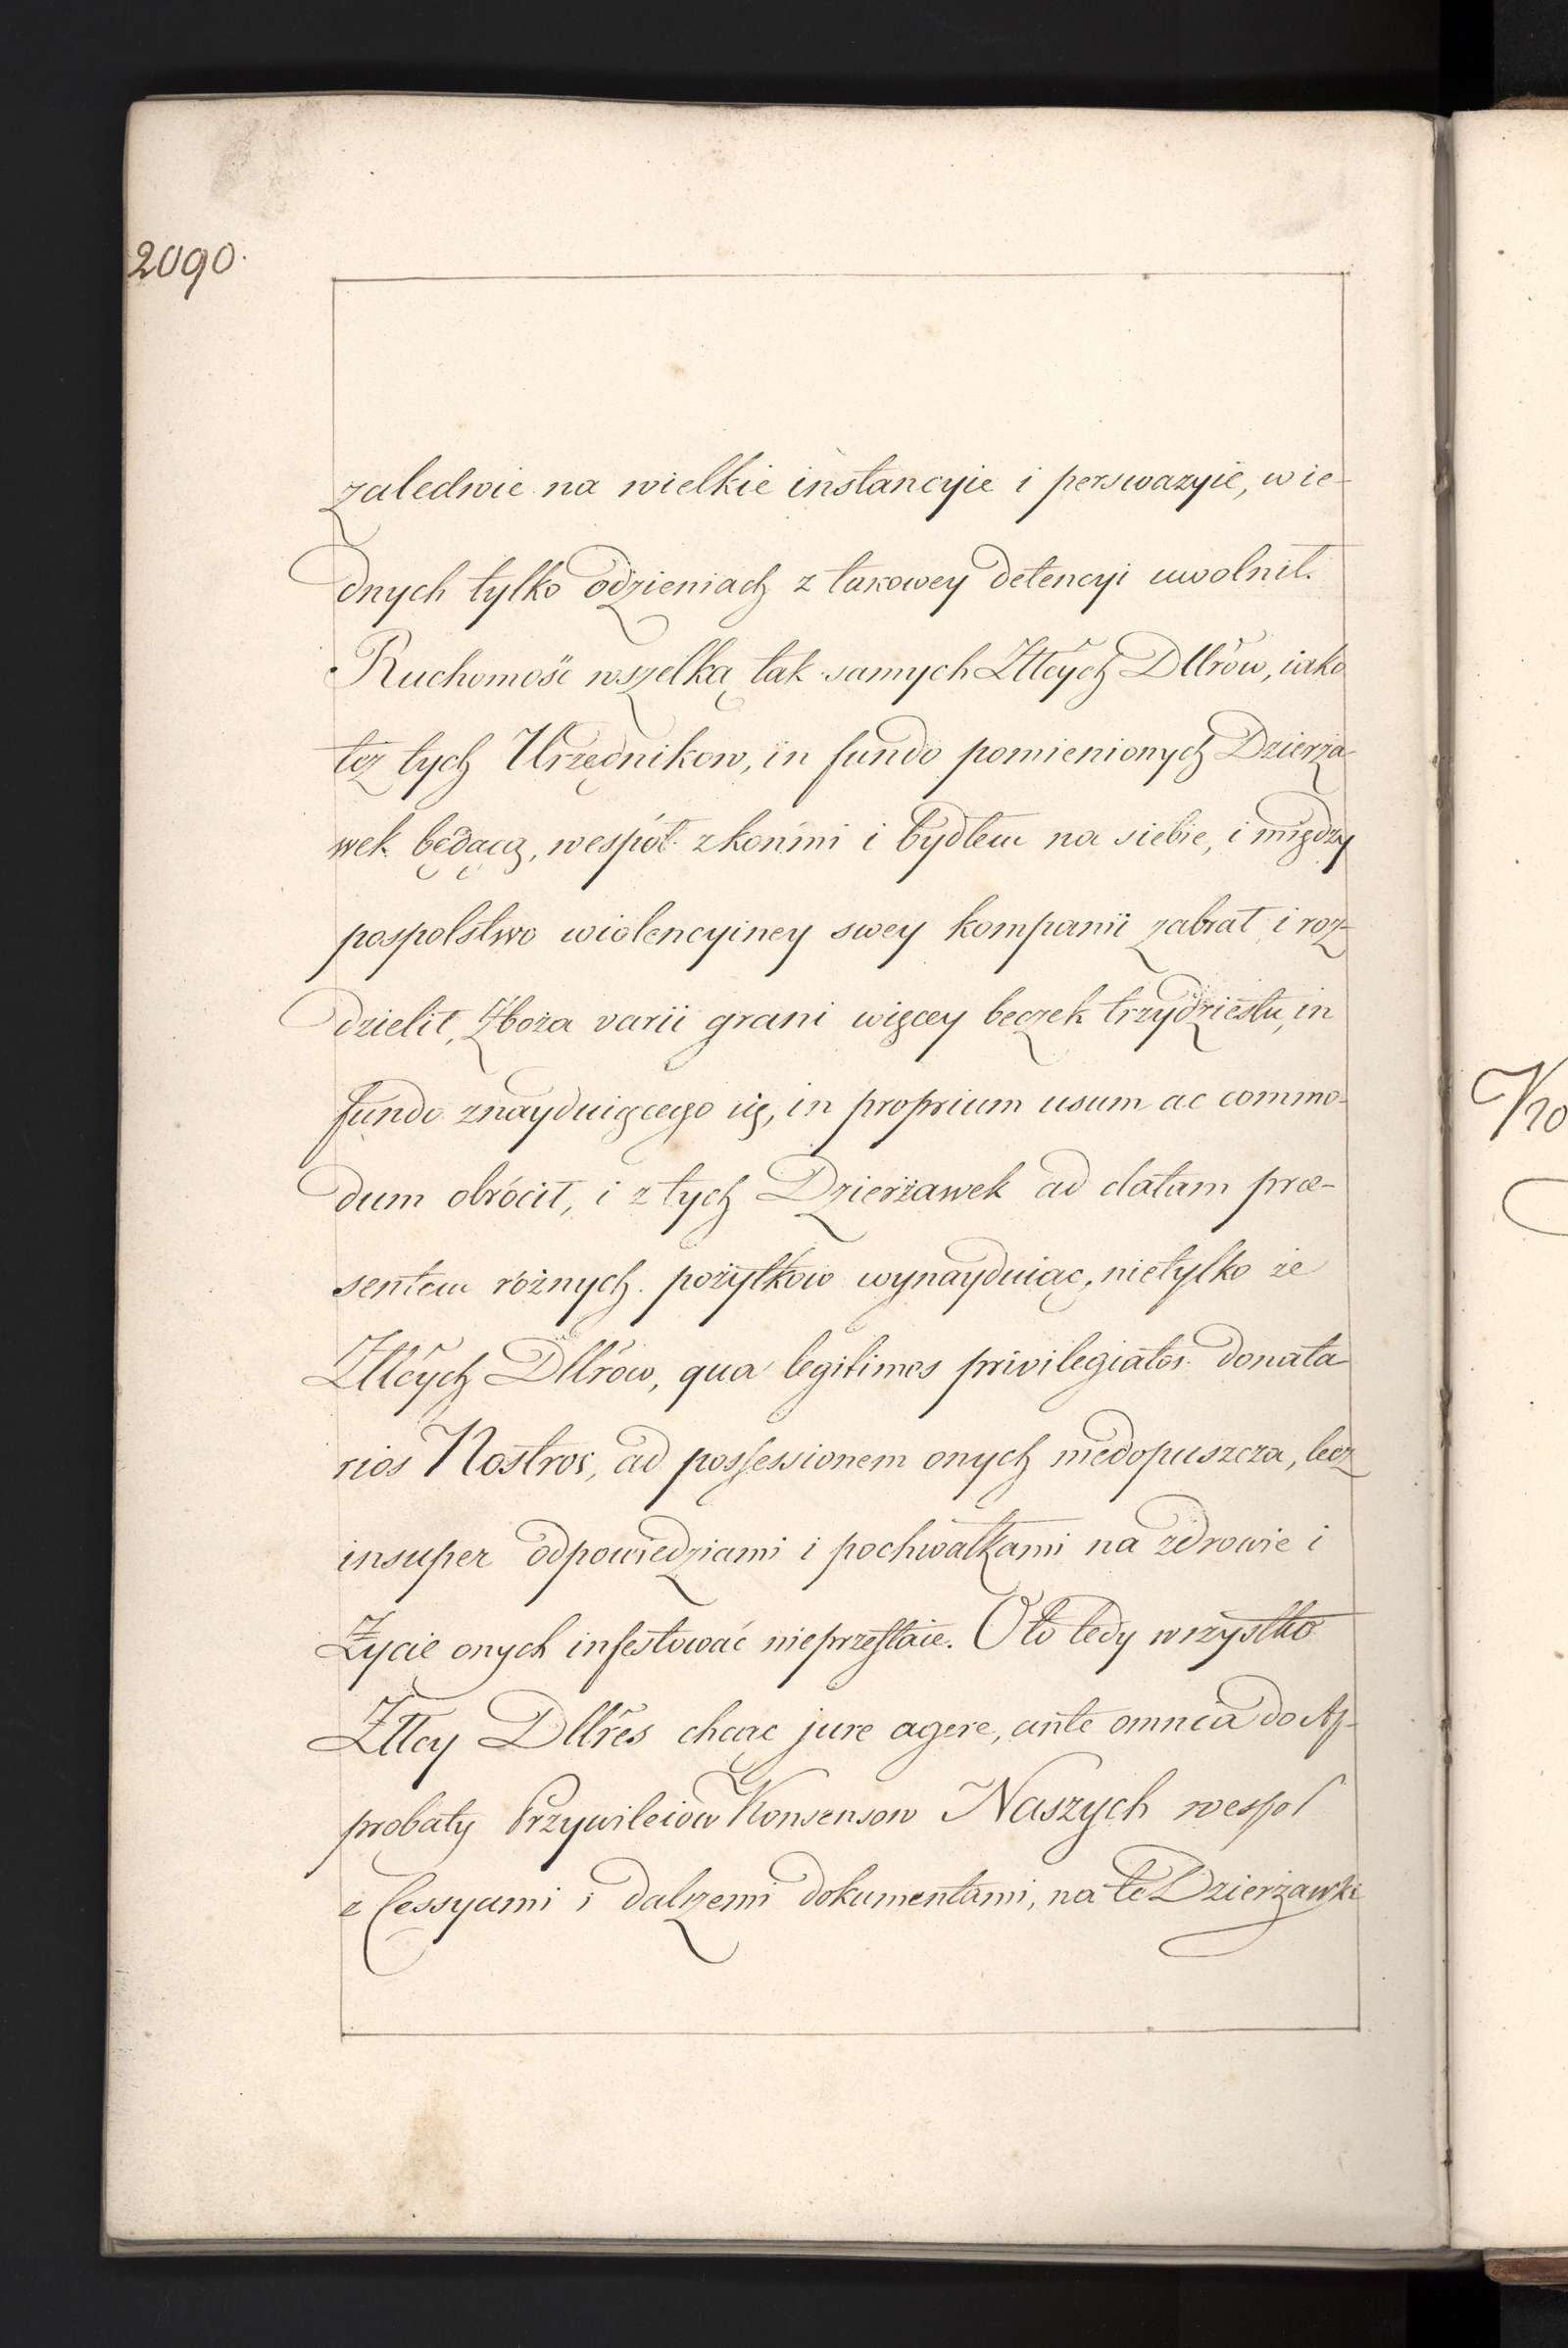 2090.
zaledwie na wielkie instancyie i perswazyie, w ie-
dnych tylko odzieniach z takowey detencyi uwolnił.
Ruchomość wszelką tak samych Żłłcych Dllrów, iako
też tych Urzędnikow, in fundo pomienionych Dzierża-
wek będącą, wespół z konmi i bydłem na siebie, i między
pospolstwo wiolencyiney swey kompanii zabrał i roz-
dzielił, Zboża varii grani więcey beczek trzydziestu, in
fundo znayduiącego się, in proprium usum ac commo-
dum obrócił, i z tych Dzierżawek ad datam prae-
sentem różnych pożytkow wynayduiąc, nietylko że
Żłłcych Dllrów, qua legitimos privilegiatos donata-
rios Nostros, ad possessionem onych niedopuszcza, lecz
insuper odpowiedziami i pochwałkami na zdrowie i
Życie onych infestować nieprzestaie. O to tedy wszystko
Żłłcy Dllres chcąc jure agere, ante omnia do Ap-
probaty Przywileiow Konsensow Naszych wespoł
z Cessyami i dalszemi dokumentami, na te Dzierżawki
Ko